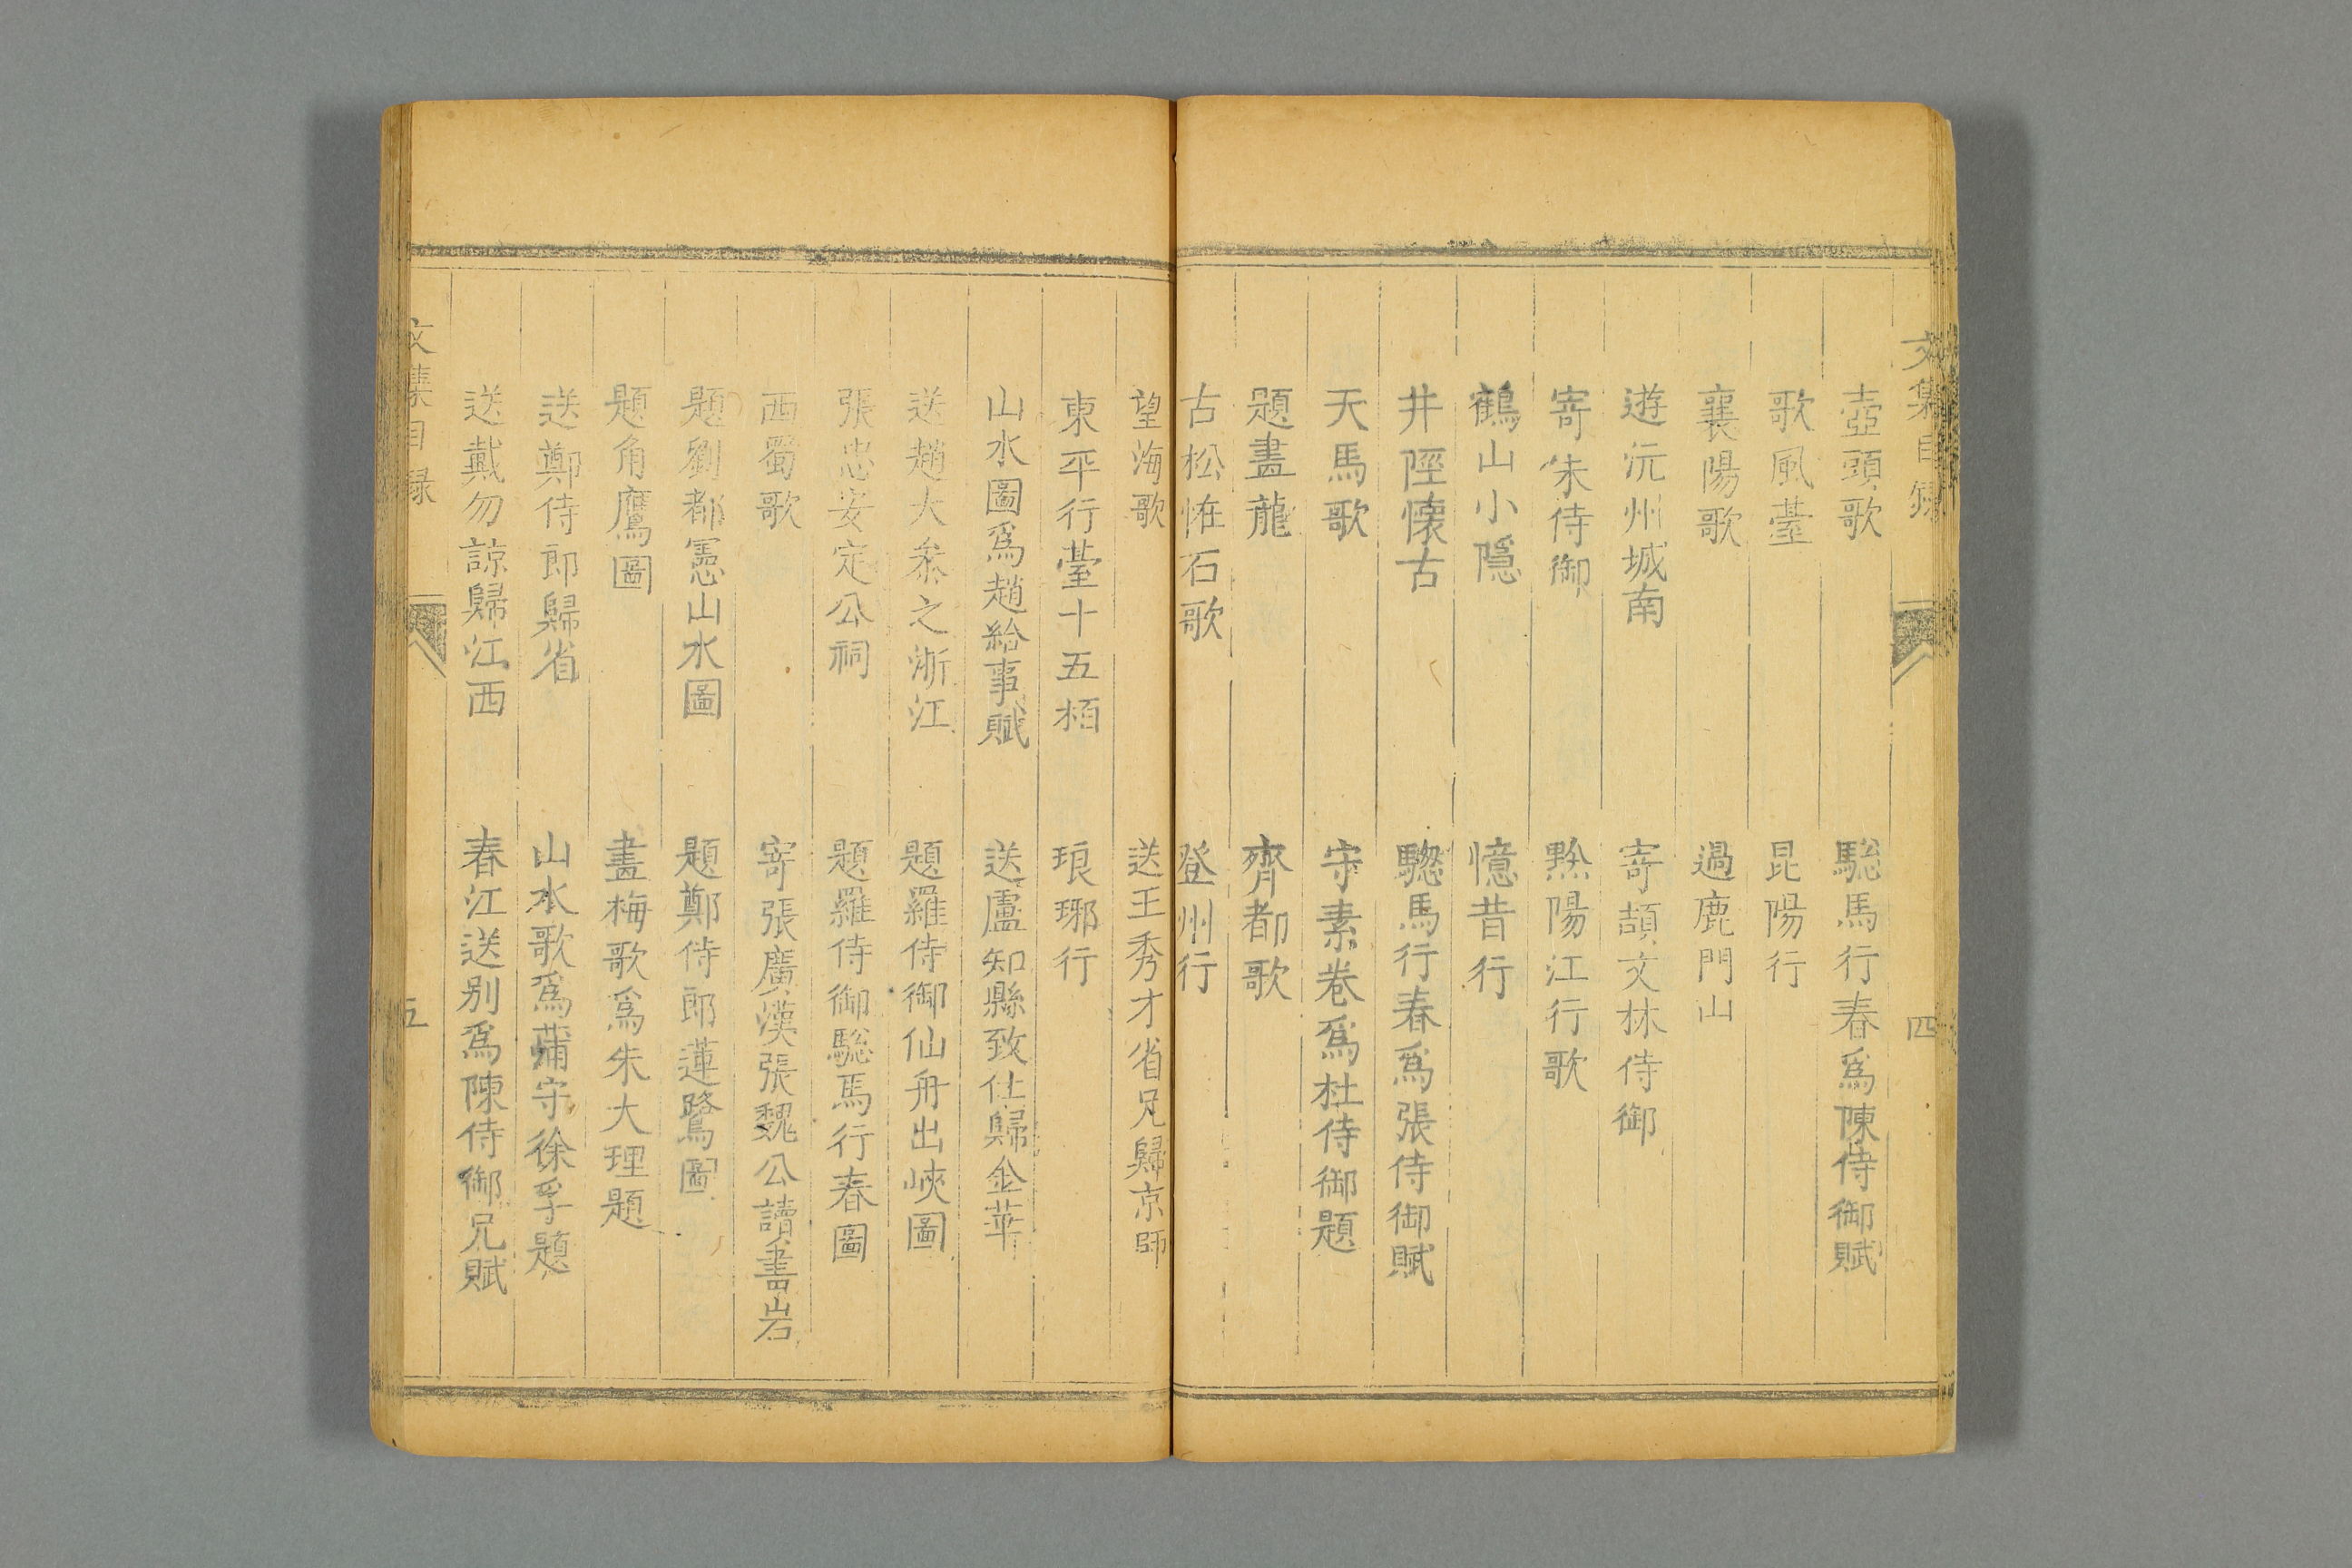 文集目錄 四
壺頭歌 驄馬行春爲陳侍御賦
歌風臺 昆陽行
襄陽歌 過鹿門山
遊沅州城南 寄頡文林侍御
寄朱侍御 黔陽江行歌
鶴山小隱 憶昔行
井陘懷古 驄馬行春爲張侍御賦
天馬歌 守素卷爲杜侍御題
題畫龍 齊都歌
古松恠石歌 登州行
望海歌 送王秀才省兄歸京師
東平行臺十五栢 琅琊行
山水圖爲趙給事賦 送盧知縣致仕歸金華
送趙大叅之浙江 題羅侍御仙舟出峽圖
張忠安定公祠 題羅侍御驄馬行春圖
西蜀歌 寄張廣漢張魏公讀書岩
題劉都憲山水圖 題鄭侍郎蓮鷺圖
題角鷹圖 畫梅歌爲朱大理題
送鄭侍郎歸省 山水歌爲蒲守徐孚題
送戴勿諒歸江西 春江送別爲陳侍御兄賦
文集目錄 五